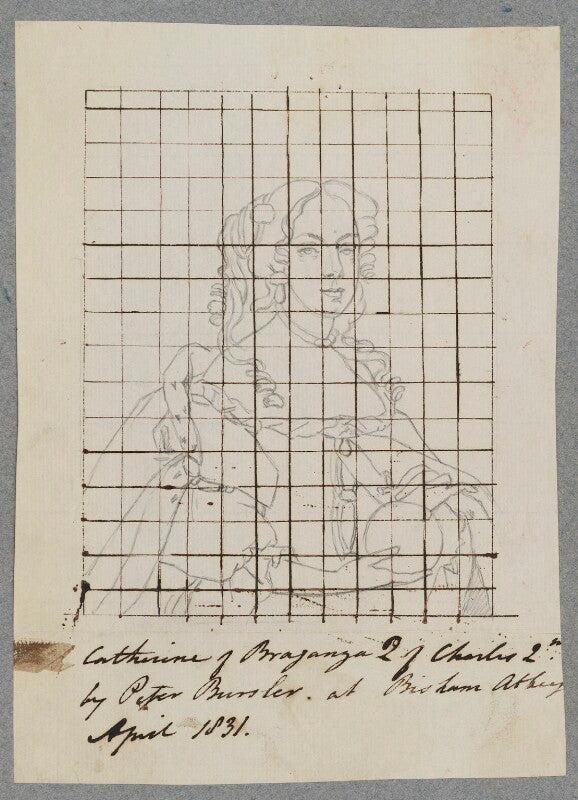 Catherine of Braganza Q of Charles 2nd
by Peter Bursler. at Bisham Abbey
April 1831.